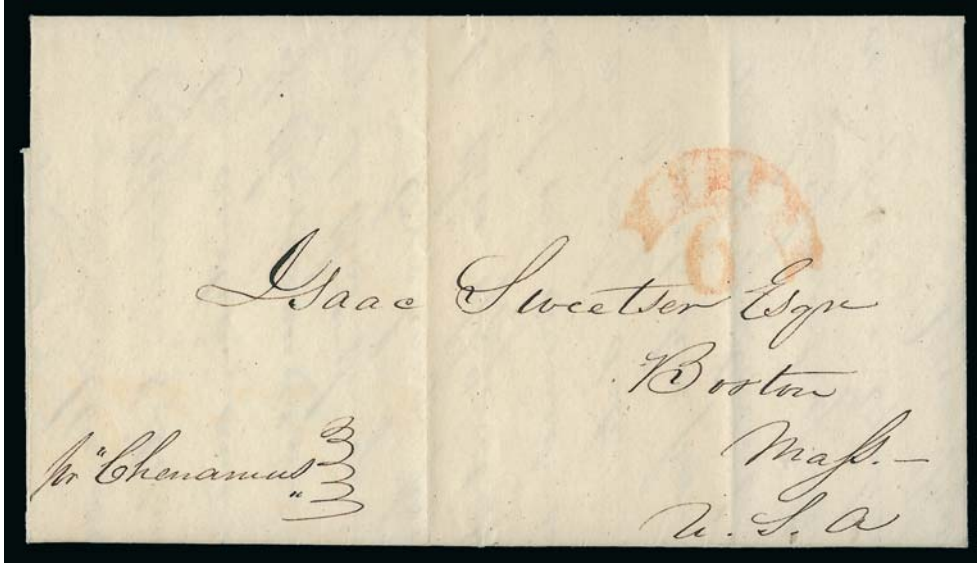 6
Isaac Sweetser Esqr
Boston
Mass.—
pr "Chenamus"
U.S.A